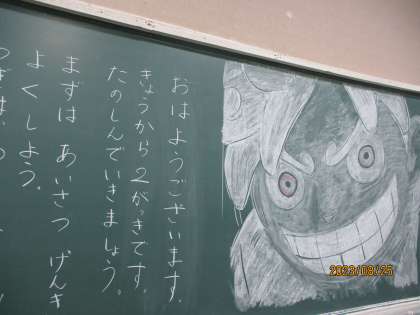 おはようございます。
きょうから2がっきです。
たのしんでいきましょう。
まずは あいさつ げんき
よくしよう。
2023/08/25